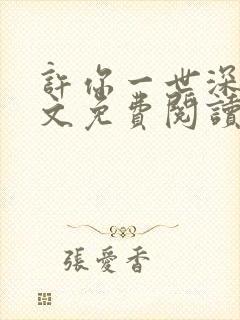 許你一世深
文免費閱讀
張愛香